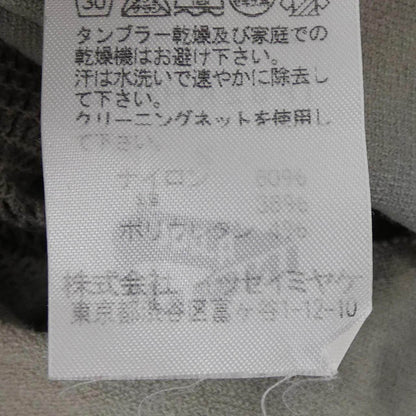 30
タンブラー乾燥及び家庭での
乾燥機はお避け下さい。
汗は水洗いで速やかに除去し
て下さい。
クリーニングネットを使用し
て下さい。
ナイロン 60%
綿 36%
ポリウレタン 4%
株式会社 イッセイミヤケ
東京都渋谷区富ヶ谷1-12-10